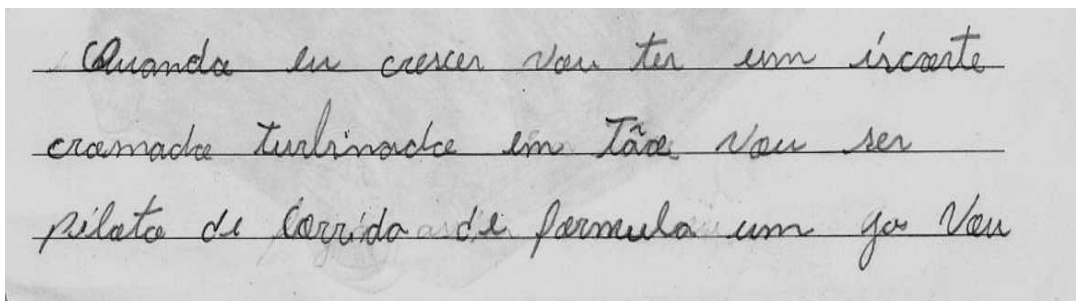 Quando eu crescer vou ter um iscorte
cromado turbinado em tão vou ser
piloto de corrida de formula um ja vou